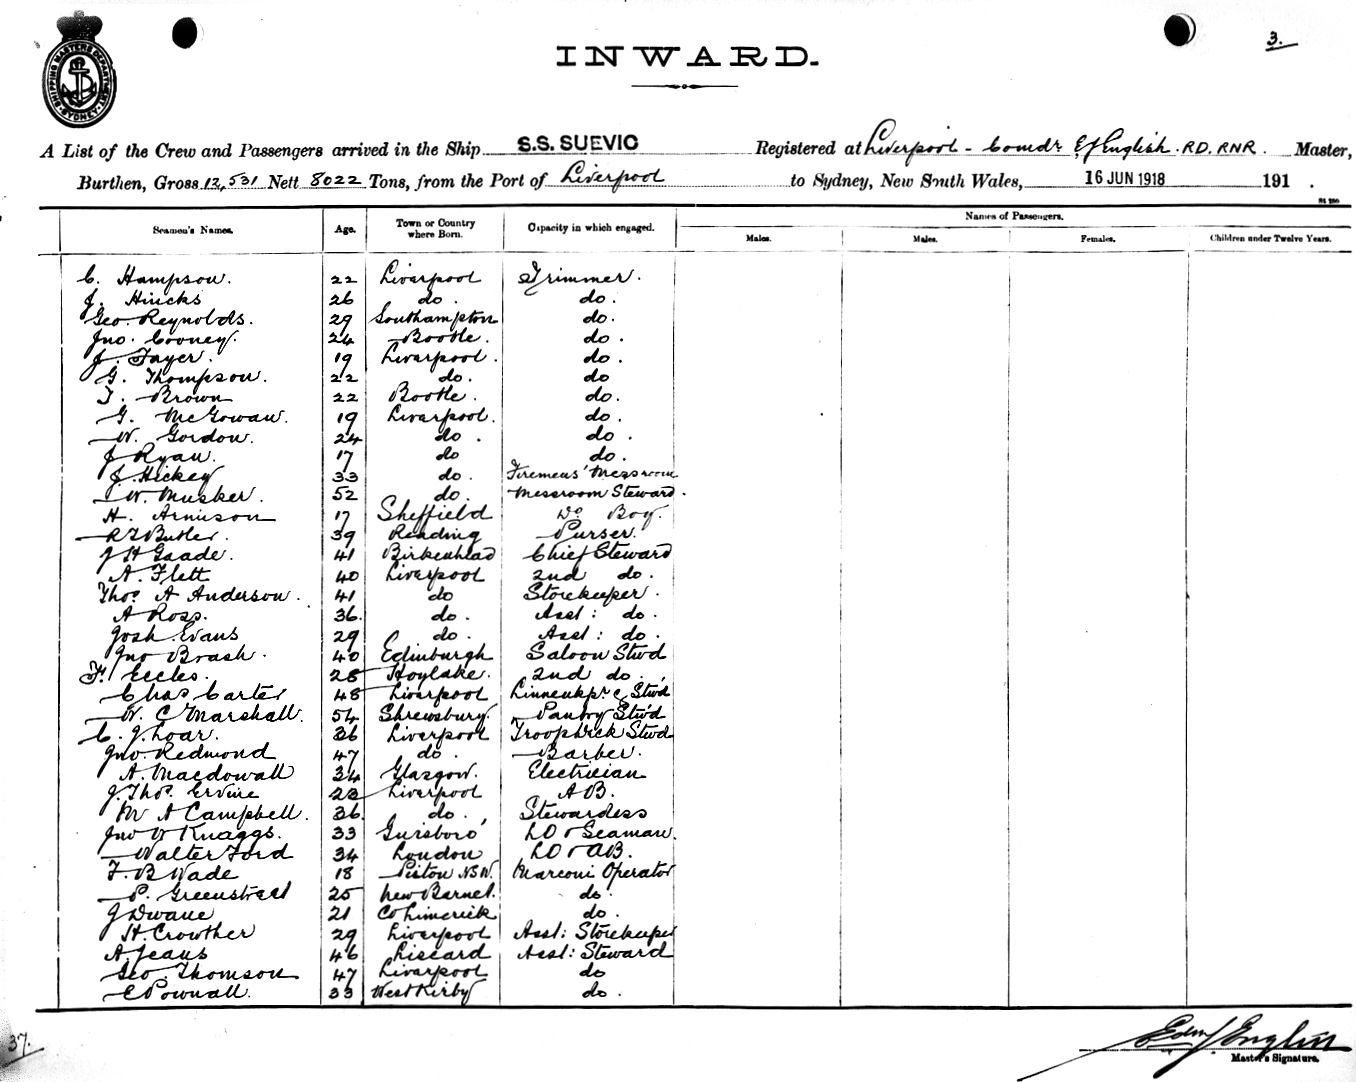 3.
SHIPPING MASTERS DEPARTMENT SYDNEY
INWARD.
A List of the Crew and Passengers arrived in the Ship S.S. SUEVIC Registered at Liverpool - Comdr E J English. RD. RNR. Master,
Burthen, Gross 12,531 Nett 8022 Tons, from the Port of Liverpool to Sydney, New South Wales, 16 JUN 1918 191 .
Names of Passengers.
Seamen's Names. Age. Town or Country where Born. Capacity in which engaged. Males. Males. Females. Children under Twelve Years.
C. Hampson. 22 Liverpool Trimmer.
J. Hincks 26 do. do.
Geo. Reynolds. 29 Southampton do.
Jno. Cooney. 24 Bootle. do.
J. Fayer. 19 Liverpool. do.
G. Thompson. 22 do. do
T. Brown 22 Bootle. do.
G. McGowan. 19 Liverpool. do.
W. Gordon. 24 do. do.
J Ryan. 17 do do.
J. Hickey 33 do. Firemens' Messroom
W. Musker. 52 do. Messroom Steward.
H. Arnison 17 Sheffield Do Boy.
R J Butler. 39 Reading Purser.
J H Gaade. 41 Birkenhead Chief Steward
A. Flett 40 Liverpool 2nd do.
Thos A Anderson. 41 do Storekeeper.
A Ross. 36. do. Asst: do.
Josh Evans 29 do. Asst: do.
Jno Brash. 40 Edinburgh Saloon Stwd
F. Eccles. 28 Hoylake. 2nd do.
Chas Carter 48 Liverpool Linnenkpr & Stwd
W. C Marshall. 54 Shrewsbury. Pantry Stwd
C. J. Loar. 36 Liverpool Troopdeck Stwd
Jno. Redmond 47 do. Barber.
A. Macdowall 34 Glasgow. Electrician
J. Thos. Ervine 23 Liverpool AB.
M A Campbell. 36. do. Stewardess
Jno W Knaggs. 33 Guisboro' LD & Seaman.
Walter Ford 34 London LD & AB.
F. B Wade 18 NSW. Marconi Operator
P. Greenstreet 25 New Barnet. do.
J Dwane 21 Co Limerick do.
H. Crowther 29 Liverpool Asst: Storekeeper
A. Jeans 46 Liscard Asst: Steward
Geo. Thomson 47 Liverpool do
E Pownall. 33 West Kirby do.
37.
Edw J English
Master's Signature.